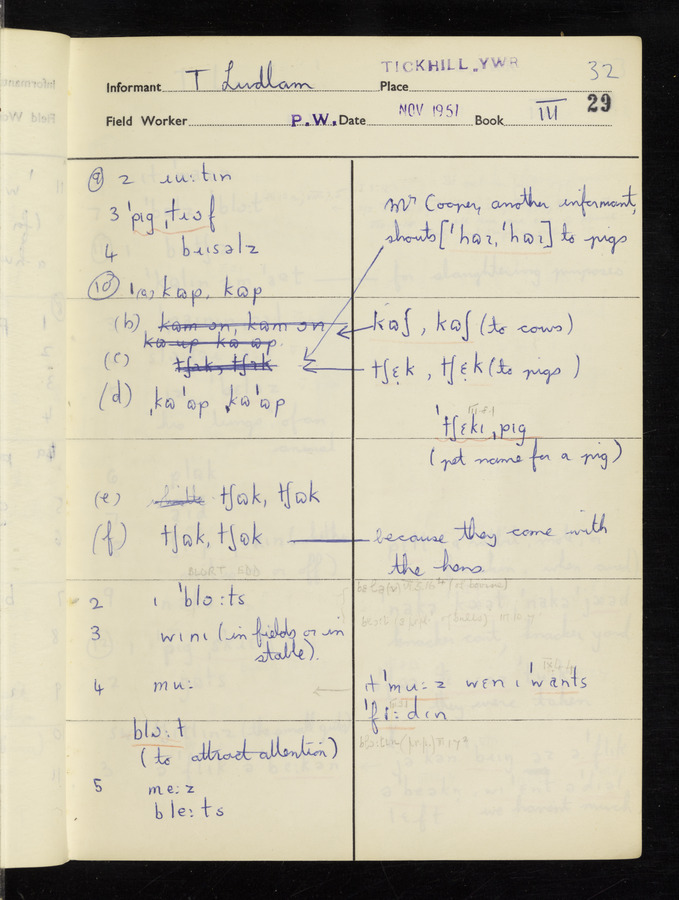 Informant T Ludlam Place TICKHILL, YWR 32
Field Worker P.W. Date NOV 1951 Book III 29
⑨ 2
3 ˈpɪg
4
⑩ 1(a) kʊp, kʊp
(b) kʊm ɒn, kʊm ɒn
kʊ ʊp kʊ ʊp
(c) tʃɷk, tʃɷk
(d) ˌkɷˈɷp ˌkɷˈɷp
(e) tʃɷk, tʃɷk
(f) tʃɷk, tʃɷk
2 ɪ ˈblɔ:ts
3 wɪnɪ (in fields or in
stable).
4 mu:
(to attract attention)
5 me:z
ble:ts
Mr Cooper, another informant,
shouts [ˈhɷz, ˈhɷz] to pigs
kɷʃ, kɷʃ (to cows)
tʃɛk, tʃɛk (to pigs)
ˈtʃɛkɪ ˌpɪg
(pet name for a pig)
because they come with
the hens.
ɪt ˈmu:z wɛn ɪ ˈwants
ˈfi:dɪn